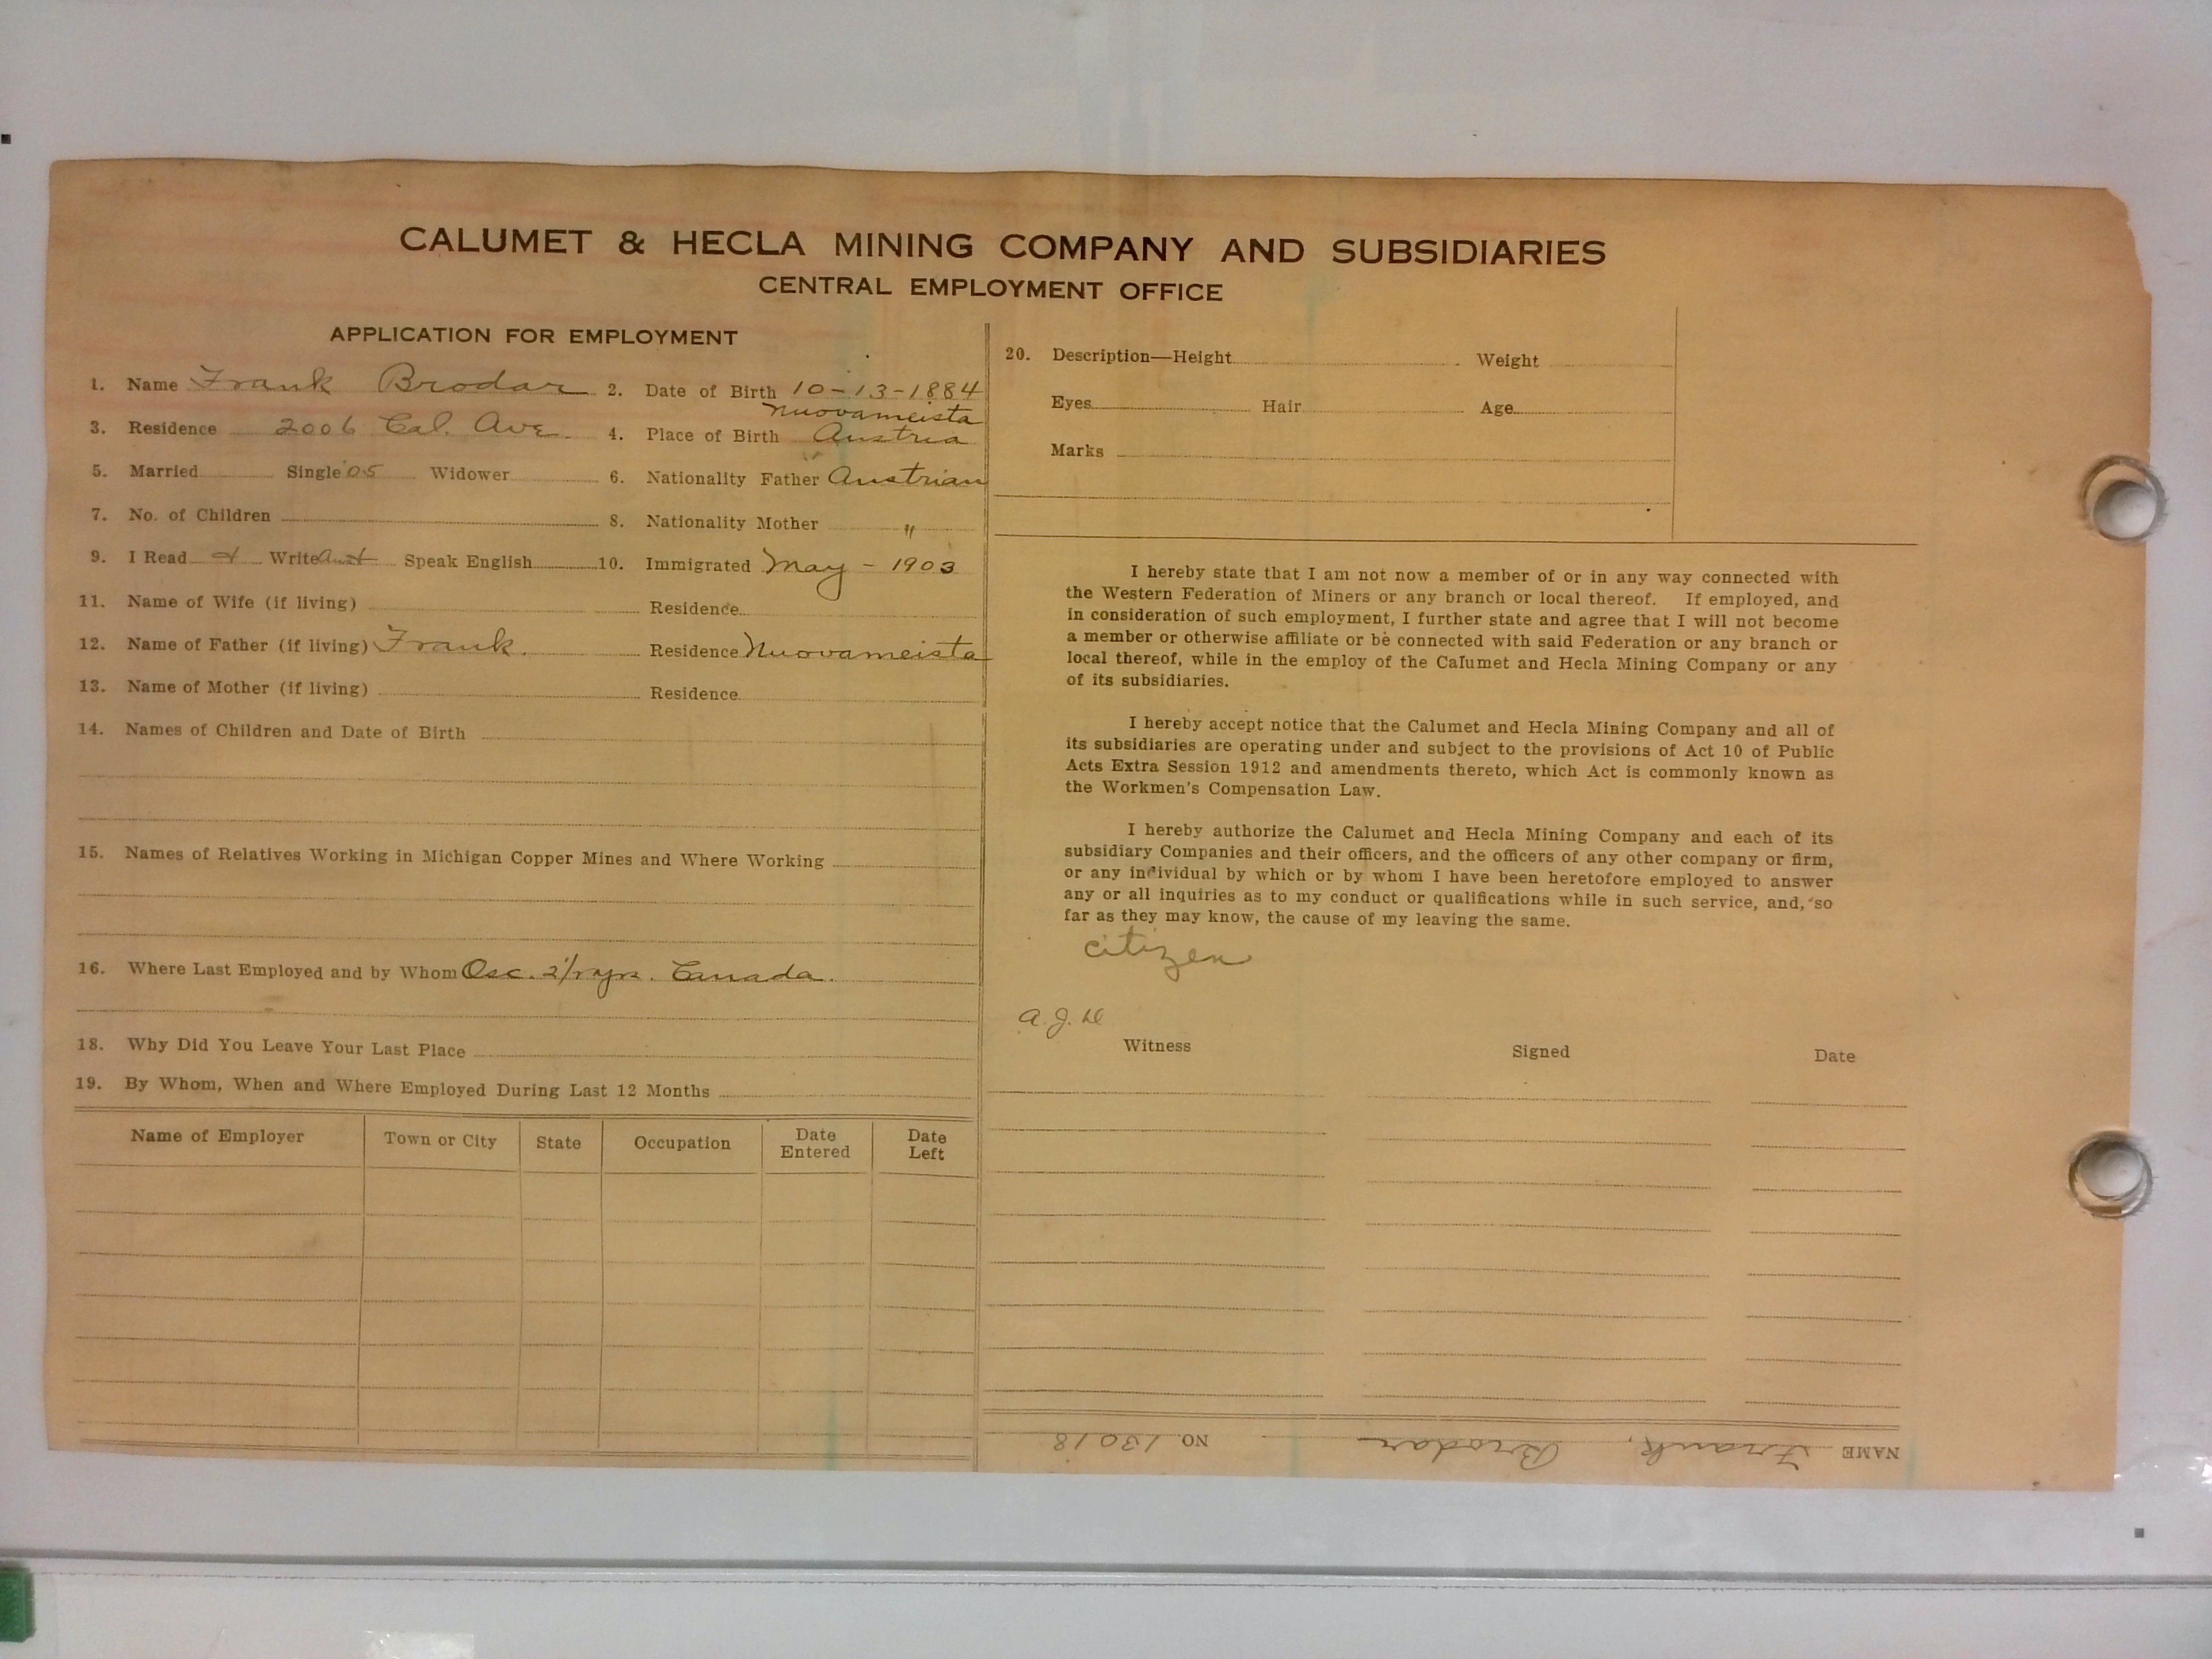 CALUMET & HECLA MINING COMPANY AND SUBSIDIARIES
CENTRAL EMPLOYMENT OFFICE
APPLICATION FOR EMPLOYMENT
1. Name Frank Brodar 2. Date of Birth 10-13-1884
Nuovameista
3. Residence 2006 Cal. Ave. 4. Place of Birth Austria
5. Married Single 05 Widower 6. Nationality Father Austrian
7. No. of Children 8. Nationality Mother "
9. I Read & Write Aust Speak English 10. Immigrated May - 1903
11. Name of Wife (if living) Residence
12. Name of Father (if living) Frank. Residence Nuovameista
13. Name of Mother (if living) Residence
14. Names of Children and Date of Birth
15. Names of Relatives Working in Michigan Copper Mines and Where Working
16. Where Last Employed and by Whom Osc. Canada.
18. Why Did You Leave Your Last Place
19. By Whom, When and Where Employed During Last 12 Months
Name of Employer Town or City State Occupation Date Entered Date Left
20. Description—Height Weight
Eyes Hair Age
Marks
I hereby state that I am not now a member of or in any way connected with
the Western Federation of Miners or any branch or local thereof. If employed, and
in consideration of such employment, I further state and agree that I will not become
a member or otherwise affiliate or be connected with said Federation or any branch or
local thereof, while in the employ of the Calumet and Hecla Mining Company or any
of its subsidiaries.
I hereby accept notice that the Calumet and Hecla Mining Company and all of
its subsidiaries are operating under and subject to the provisions of Act 10 of Public
Acts Extra Session 1912 and amendments thereto, which Act is commonly known as
the Workmen's Compensation Law.
I hereby authorize the Calumet and Hecla Mining Company and each of its
subsidiary Companies and their officers, and the officers of any other company or firm,
or any individual by which or by whom I have been heretofore employed to answer
any or all inquiries as to my conduct or qualifications while in such service, and, so
far as they may know, the cause of my leaving the same.
citizen
A. J. H
Witness Signed Date
NAME Frank, Brodar NO. 13018